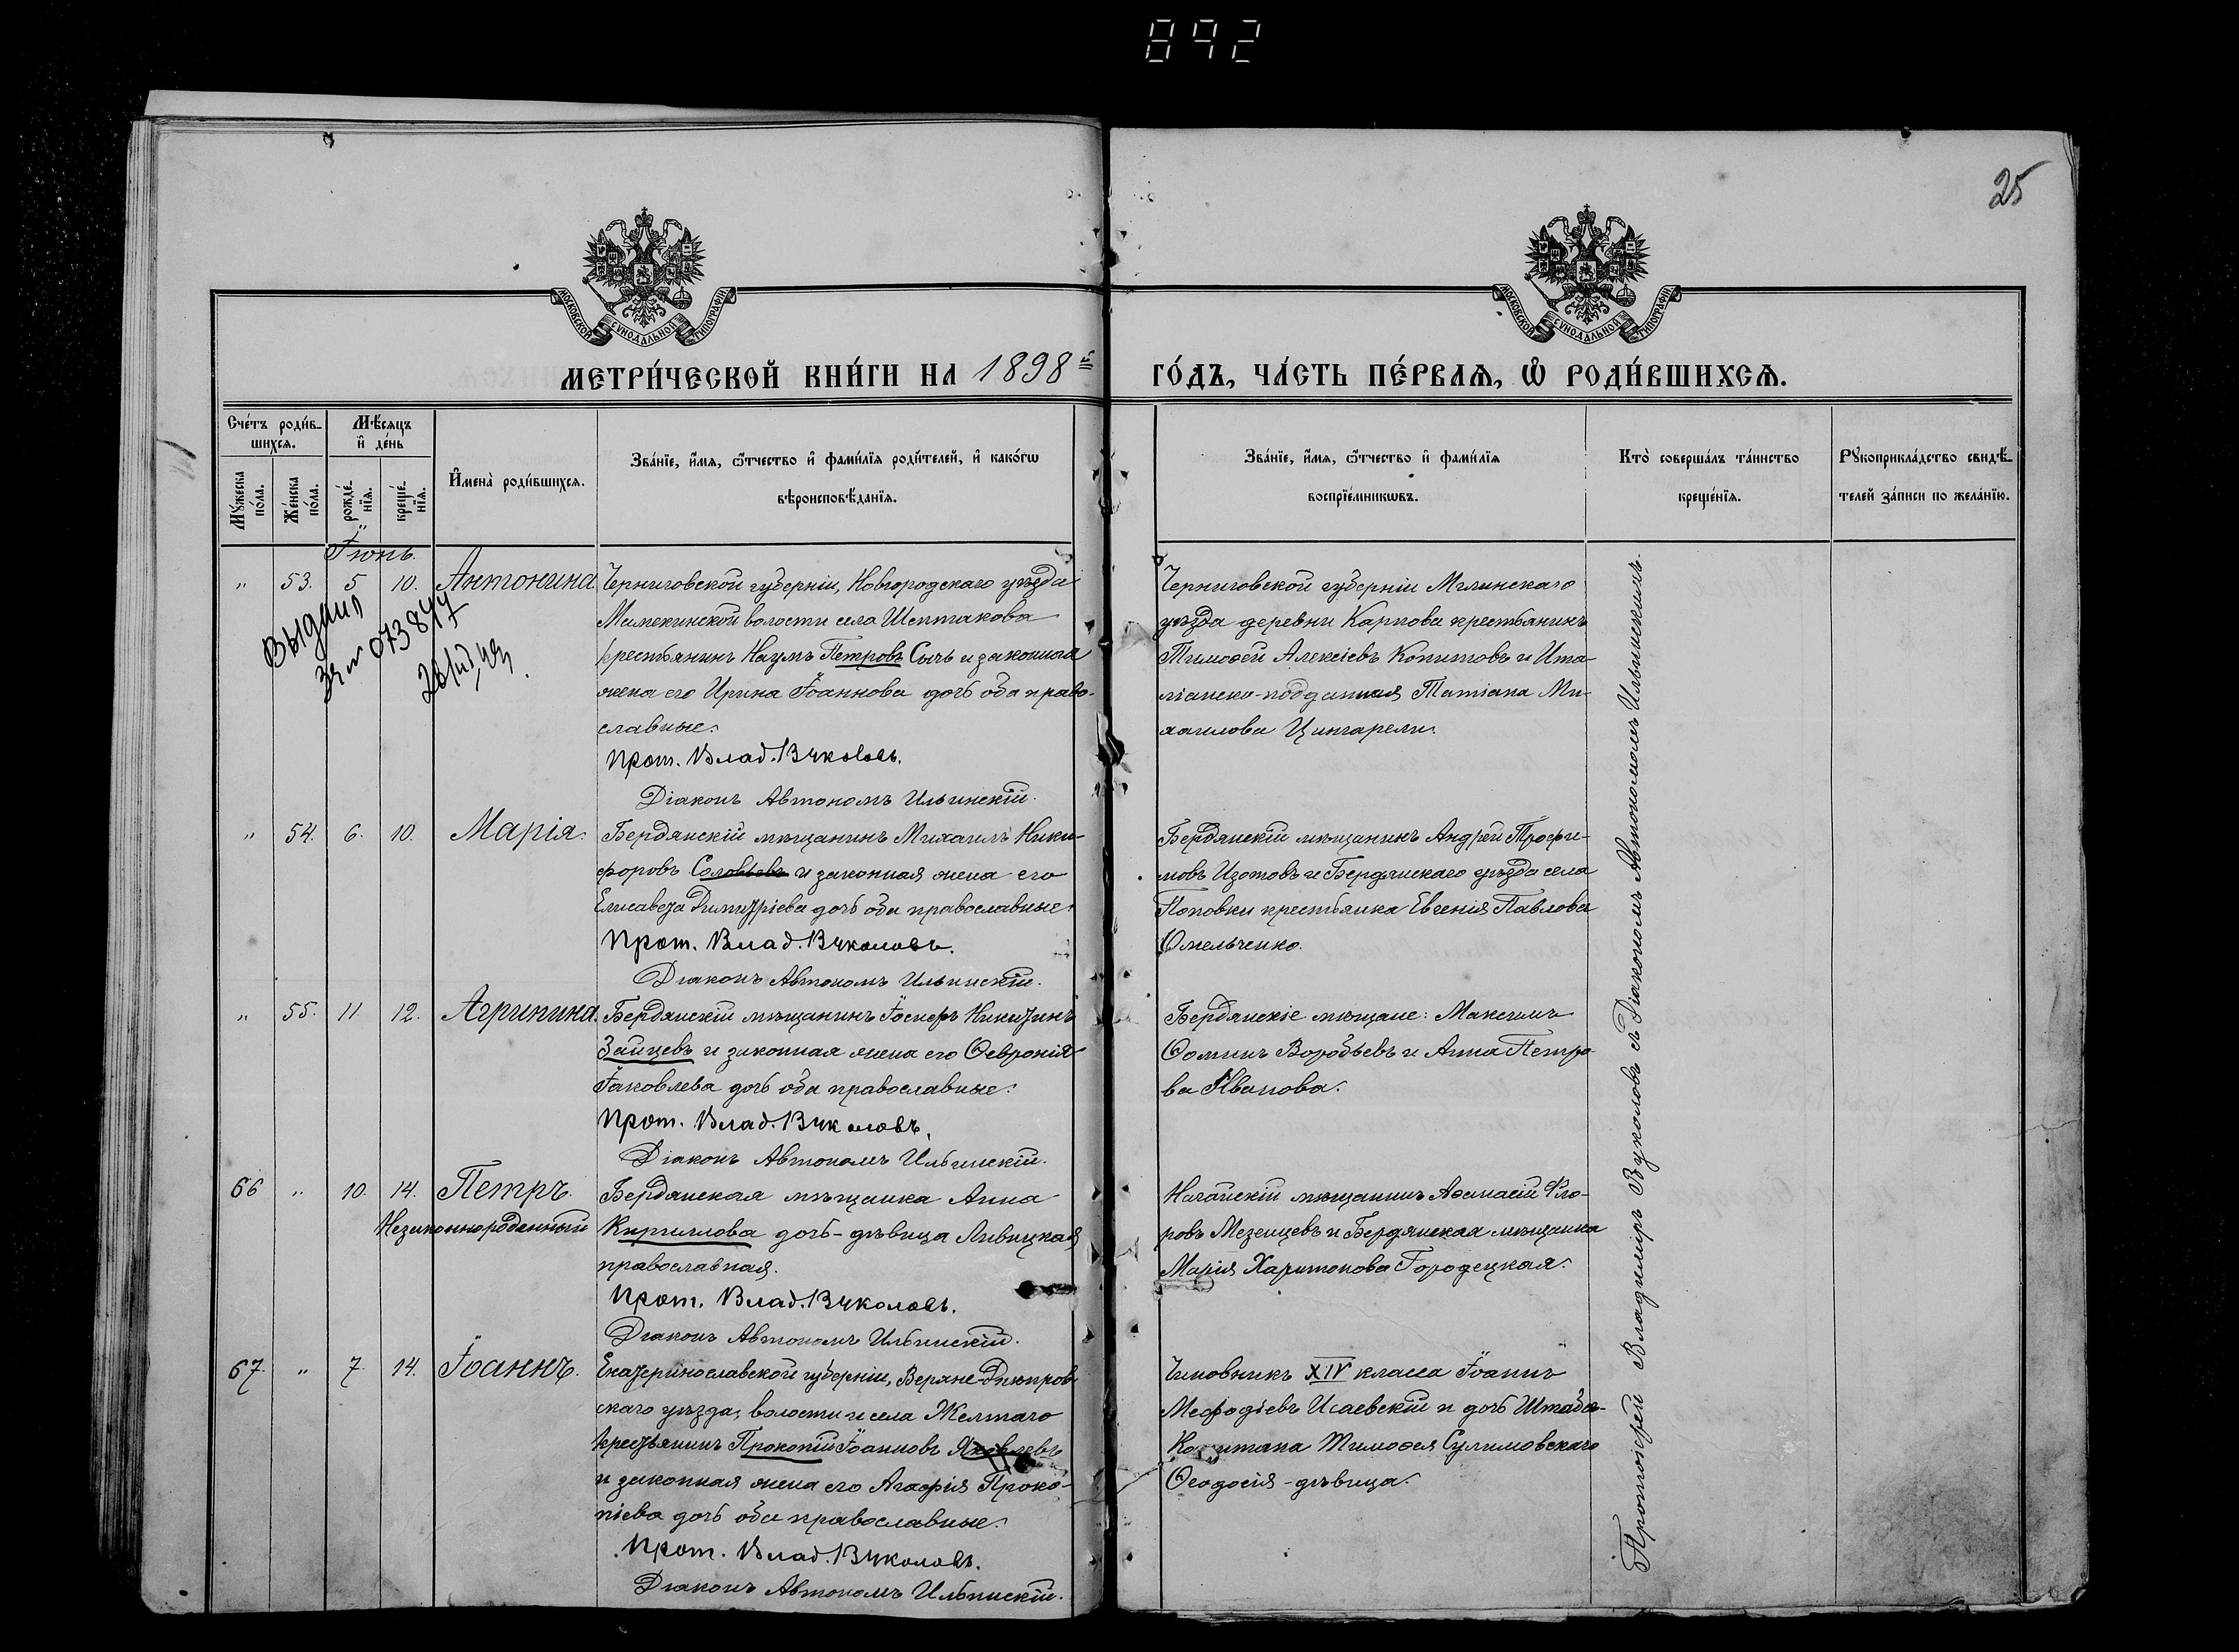 892
25
МОСКОВСКОЙ СУНОДАЛЬНОЙ ТИПОГРАФІИ
МОСКОВСКОЙ СУНОДАЛЬНОЙ ТИПОГРАФІИ
МЕТРИ́ЧЕСКОЙ КНИ́ГИ НА 1898й ГО́ДЪ, ЧА́СТЬ ПЕ́РВАѦ, Ѡ҆ РОДИ́ВШИХСѦ.
Сче́тъ роди́в-
шихсѧ.
Мѣ́сѧцъ
и҆ де́нь
Мꙋ́жеска
по́ла.
Же́нска
по́ла.
рожде́-
нїѧ.
креще́-
нїѧ.
И҆мена̀ роди́вшихсѧ.
Зва́нїе, и҆́мѧ, ѻ҆́тчество и҆ фами́лїѧ роди́телей, и҆ како́гѡ
вѣроисповѣ́данїѧ.
Зва́нїе, и҆́мѧ, ѻ҆́тчество и҆ фами́лїѧ
воспрїе́мникѡвъ.
Кто̀ соверша́лъ та́инство
креще́нїѧ.
Рꙋкоприкла́дство свидѣ́-
телей за́писи по жела́нїю.
Іюнь.
" 53. 5 10. Антонина.
Черниговской губерніи, Новгородскаго уѣзда
волости села Шептакова
крестьянинъ Наумъ Петровъ Сычъ и законная
жена его Ирина Іоаннова дочь оба право-
славные.
Прот. Влад. Вуколовъ.
Діаконъ Автономъ Ильинскій.
Черниговской губерніи Мглинскаго
уѣзда деревни Карпова крестьянинъ
Тимоѳей Алексіевъ Копитовъ и Ита-
ліанско-подданная Татіана Ми-
хаилова Цингарели.
Выдано
за № 073847
" 54. 6. 10. Марія.
Бердянскій мѣщанинъ Михаилъ Ники-
форовъ Соловьевъ и законная жена его
Елисавета Димитріева дочь оба православные.
Прот. Влад. Вуколовъ.
Діаконъ Автономъ Ильинскій.
Бердянскій мѣщанинъ Андрей Трофи-
мовъ Изотовъ и Бердянскаго уѣзда села
Поповки крестьянка Евгенія Павлова
Омельченко.
" 55. 11 12. Агрипина.
Бердянскій мѣщанинъ Іосифъ Никитинъ
Зайцевъ и законная жена его Ѳевронія
Іаковлева дочь оба православные.
Прот. Влад. Вуколовъ.
Діаконъ Автономъ Ильинскій.
Бердянскіе мѣщане: Максимъ
Ѳоминъ Воробьевъ и Анна Петро-
ва Иванова.
66 " 10. 14. Петръ.
Незаконнорожденный
Бердянская мѣщанка Анна
Кириллова дочь - дѣвица Ливицкая
православная.
Прот. Влад. Вуколовъ.
Діаконъ Автономъ Ильинскій.
Ногайскій мѣщанинъ Аѳанасій Фло-
ровъ Мезенцевъ и Бердянская мѣщанка
Марія Харитонова Городецкая.
67. " 7. 14. Іоаннъ.
Екатеринославской губерніи, Верхне-Днѣпров-
скаго уѣзда, волости и села Желтаго
крестьянинъ Прокопій Іоанновъ Яковлевъ
и законная жена его Агафія Проко-
піева дочь оба православные.
Прот. Влад. Вуколовъ.
Діаконъ Автономъ Ильинскій.
Чиновникъ XIV класса Іоаннъ
Меѳодіевъ Исаевскій и дочь Штабсъ-
Капитана Тимоѳея Сулимовскаго
Ѳеодосія - дѣвица.
Протоіерей Владимиръ Вуколовъ съ Діакономъ Автономомъ Ильинскимъ.